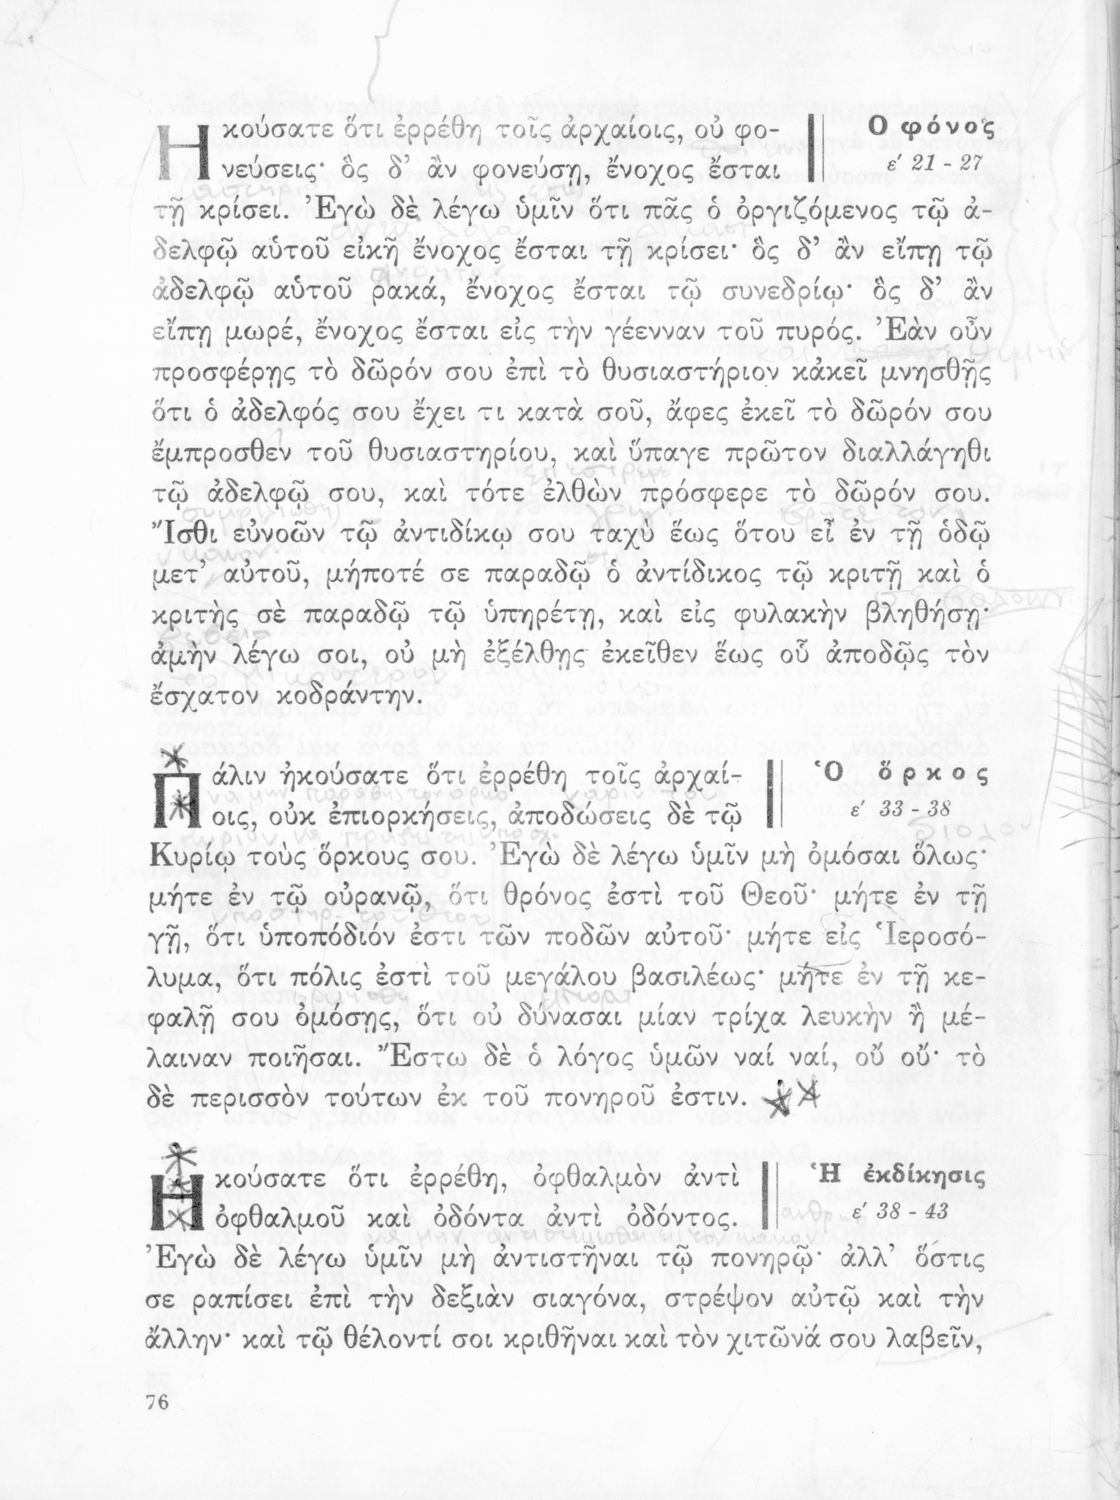 Ηκούσατε ὅτι ἐρρέθη τοῖς ἀρχαίοις, οὐ φο-
νεύσεις· ὃς δ’ ἂν φονεύσῃ, ἔνοχος ἔσται
Ο φόνος
ε΄ 21 - 27
τῇ κρίσει. Ἐγὼ δὲ λέγω ὑμῖν ὅτι πᾶς ὁ ὀργιζόμενος τῷ ἀ-
δελφῷ αὑτοῦ εἰκῆ ἔνοχος ἔσται τῇ κρίσει· ὃς δ’ ἂν εἴπῃ τῷ
ἀδελφῷ αὑτοῦ ρακά, ἔνοχος ἔσται τῷ συνεδρίῳ· ὃς δ’ ἂν
εἴπῃ μωρέ, ἔνοχος ἔσται εἰς τὴν γέενναν τοῦ πυρός. Ἐὰν οὖν
προσφέρῃς τὸ δῶρόν σου ἐπὶ τὸ θυσιαστήριον κἀκεῖ μνησθῇς
ὅτι ὁ ἀδελφός σου ἔχει τι κατὰ σοῦ, ἄφες ἐκεῖ τὸ δῶρόν σου
ἔμπροσθεν τοῦ θυσιαστηρίου, καὶ ὕπαγε πρῶτον διαλλάγηθι
τῷ ἀδελφῷ σου, καὶ τότε ἐλθὼν πρόσφερε τὸ δῶρόν σου.
Ἴσθι εὐνοῶν τῷ ἀντιδίκῳ σου ταχὺ ἕως ὅτου εἶ ἐν τῇ ὁδῷ
μετ’ αὐτοῦ, μήποτέ σε παραδῷ ὁ ἀντίδικος τῷ κριτῇ καὶ ὁ
κριτὴς σὲ παραδῷ τῷ ὑπηρέτῃ, καὶ εἰς φυλακὴν βληθήσῃ·
ἀμὴν λέγω σοι, οὐ μὴ ἐξέλθῃς ἐκεῖθεν ἕως οὗ ἀποδῷς τὸν
ἔσχατον κοδράντην.
Πάλιν ἠκούσατε ὅτι ἐρρέθη τοῖς ἀρχαί-
οις, οὐκ ἐπιορκήσεις, ἀποδώσεις δὲ τῷ
Ὁ ὅρκος
ε΄ 33 - 38
Κυρίῳ τοὺς ὅρκους σου. Ἐγὼ δὲ λέγω ὑμῖν μὴ ὀμόσαι ὅλως·
μήτε ἐν τῷ οὐρανῷ, ὅτι θρόνος ἐστὶ τοῦ Θεοῦ· μήτε ἐν τῇ
γῇ, ὅτι ὑποπόδιόν ἐστι τῶν ποδῶν αὐτοῦ· μήτε εἰς Ἱεροσό-
λυμα, ὅτι πόλις ἐστὶ τοῦ μεγάλου βασιλέως· μήτε ἐν τῇ κε-
φαλῇ σου ὀμόσῃς, ὅτι οὐ δύνασαι μίαν τρίχα λευκὴν ἢ μέ-
λαιναν ποιῆσαι. Ἔστω δὲ ὁ λόγος ὑμῶν ναί ναί, οὔ οὔ· τὸ
δὲ περισσὸν τούτων ἐκ τοῦ πονηροῦ ἐστιν.
Ηκούσατε ὅτι ἐρρέθη, ὀφθαλμὸν ἀντὶ
ὀφθαλμοῦ καὶ ὀδόντα ἀντὶ ὀδόντος.
Ἡ ἐκδίκησις
ε΄ 38 - 43
Ἐγὼ δὲ λέγω ὑμῖν μὴ ἀντιστῆναι τῷ πονηρῷ· ἀλλ’ ὅστις
σε ραπίσει ἐπὶ τὴν δεξιὰν σιαγόνα, στρέψον αὐτῷ καὶ τὴν
ἄλλην· καὶ τῷ θέλοντί σοι κριθῆναι καὶ τὸν χιτῶνά σου λαβεῖν,
76